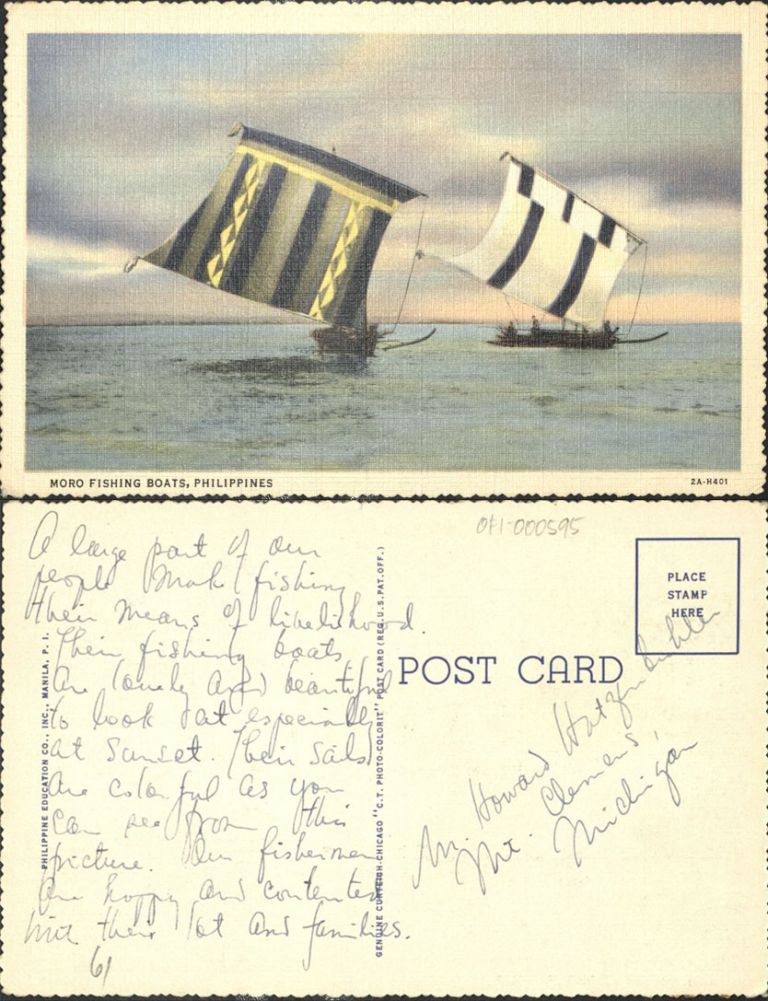 MORO FISHING BOATS, PHILIPPINES
2A-H401
A large part of our
people make fishing
their means of livelihood.
Their fishing boats
are lovely and beautiful
to look at especially
at sunset. Their sails
are colorful as you
can see from this
picture. Our fishermen
are happy and contented
with their lot and families.
61
PHILIPPINE EDUCATION CO., INC., MANILA, P. I.
GENUINE CURTEICH-CHICAGO "C.T. PHOTO-COLORIT" POST CARD (REG. U.S. PAT. OFF.)
OF1-000595
PLACE
STAMP
HERE
POST CARD
Mr. Howard
Mt. Clemens,
Michigan